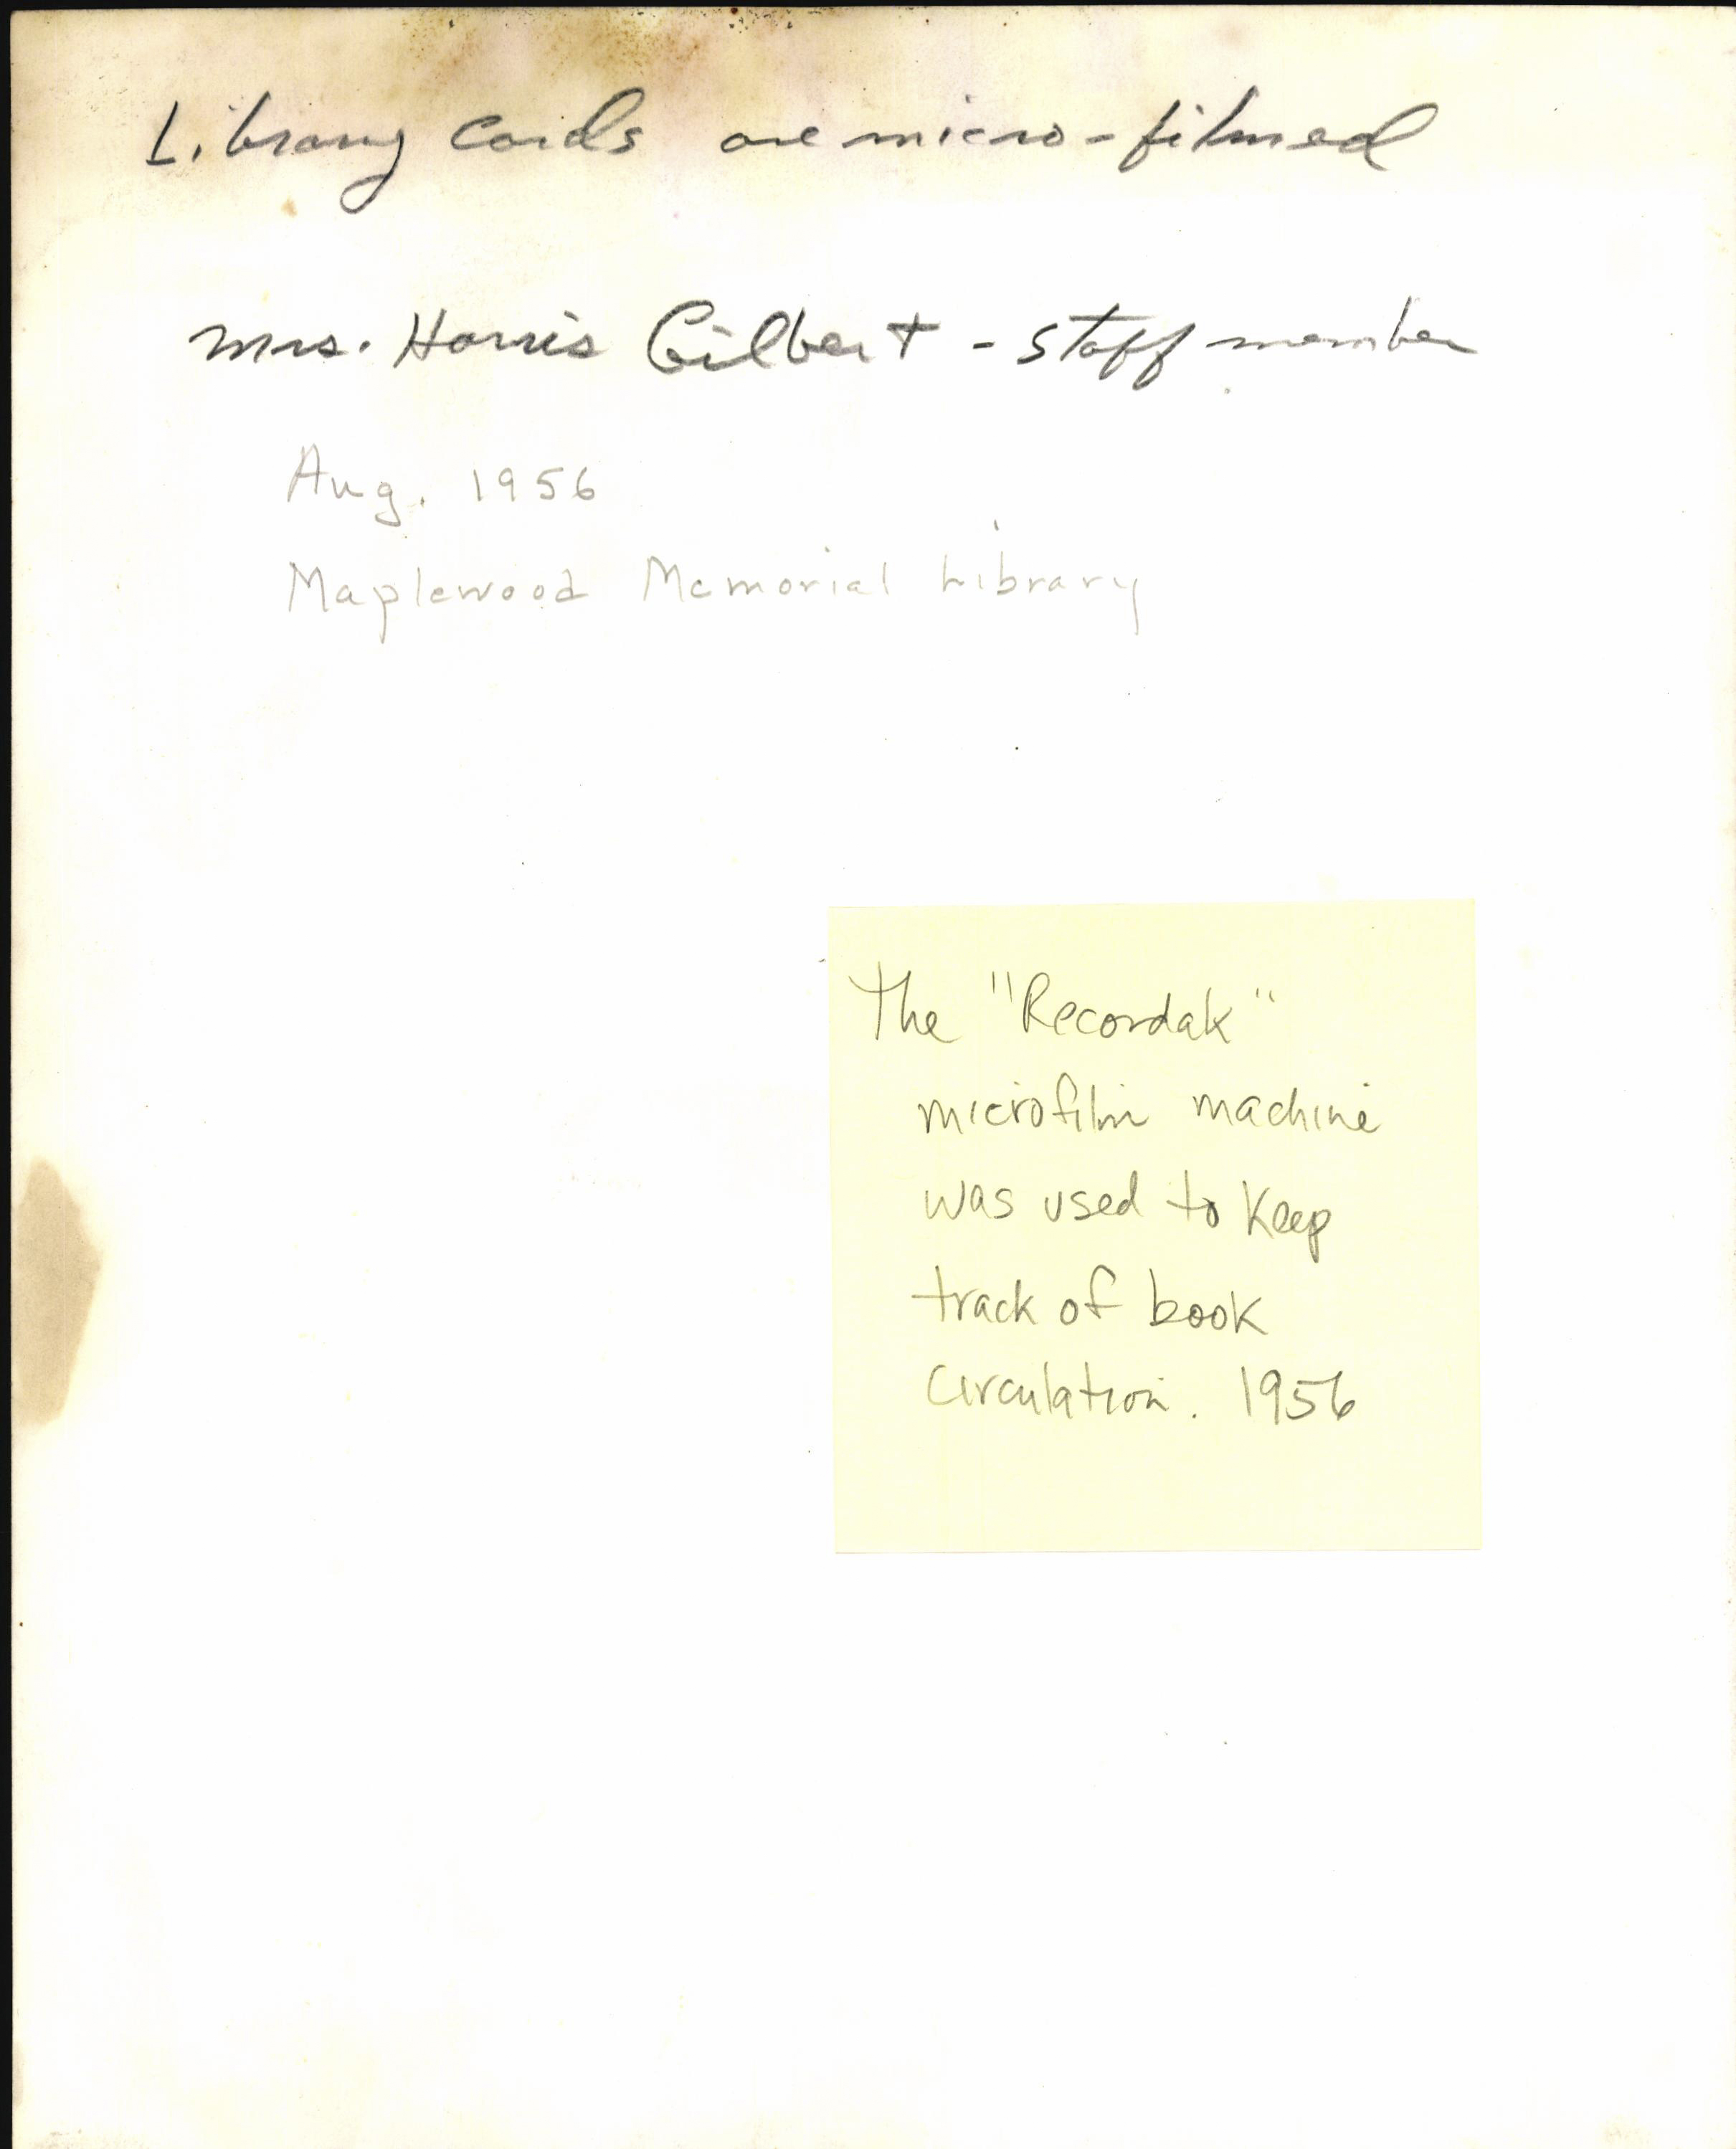 Library cards are micro-filmed
Mrs. Harris Gilbert - staff member
Aug. 1956
Maplewood Memorial Library
The "Recordak"
microfilm machine
was used to keep
track of book
circulation. 1956